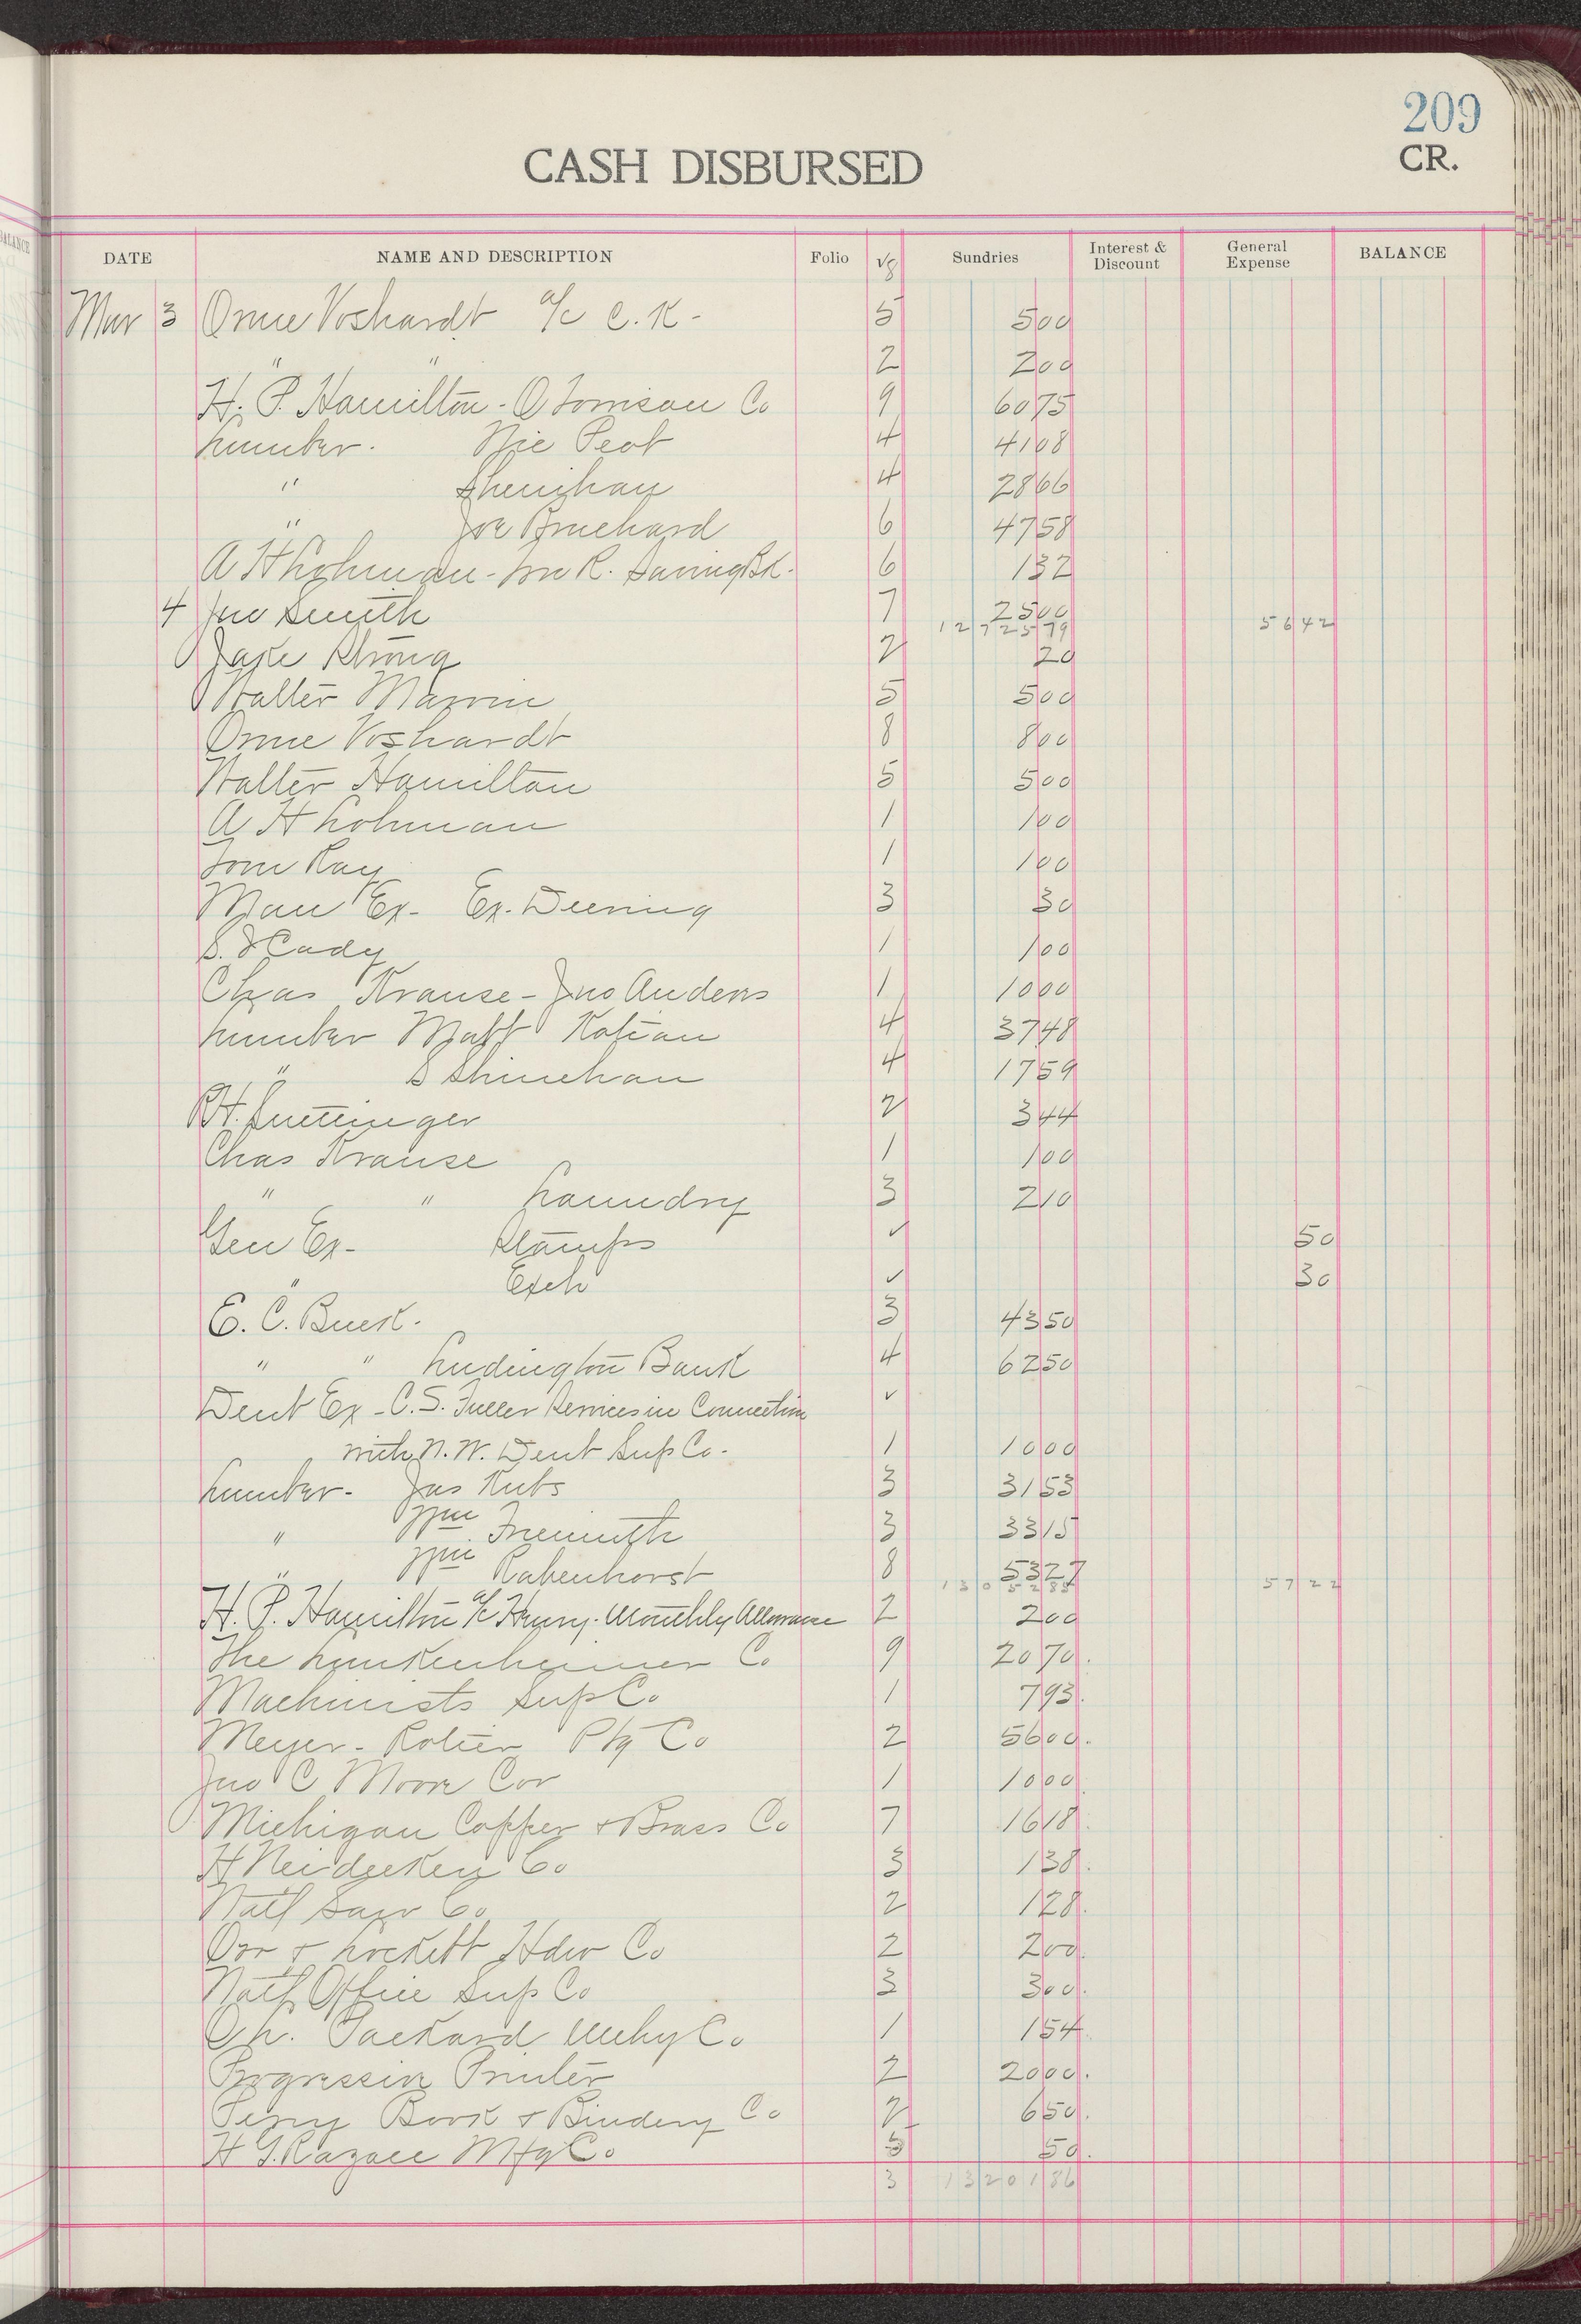 209
CR.
CASH DISBURSED
DATE NAME AND DESCRIPTION Folio Vg Sundries Interest & Discount General Expense BALANCE
Mar 3 Orrie Voshardt a/c C.K- 5 500
" " 2 200
H. P. Hamilton - O Torrison Co 9 6075
Lumber. Nic Peot 4 4108
" Shenihan 4 2866
" Joe Bruchard 6 4758
A H Lohman - Savings Bk. 6 132
4 Jno Smith 7 2500
12725 79 56 42
Jake 2 20
Walter Marvin 5 500
Orrie Voshardt 8 800
Walter Hamilton 5 500
A H Lohman 1 100
Tom Ray 1 100
Man Ex- Ex. Deering 3 30
S. J Cady 1 100
Chas Krause - Jno Anders 1 1000
Lumber Matt 4 3748
" S Shinehan 4 1759
Luettinger 2 344
Chas Krause 1 100
" " Laundry 3 210
Gen Ex- Stamps ✓ 50
" Exch ✓ 30
E. C. Buek. 3 4350
" " Ludington Bank 4 6250
Dent Ex - C.S. Fuller Services in Connection ✓
with N. W. Dent Sup Co. 1 1000
Lumber- Jas Kubs 3 3153
" Wm 3 3315
" Wm Rabenhorst 8 5327
13052 85 57 22
H. P. Hamilton a/c Henry. Monthly Allowance 2 200
The Lunkenheimer Co 9 2070.
Machinists Sup Co 1 793.
Meyer - Rotier Ptg Co 2 5600.
Jno C Moore Cor 1 1000.
Michigan Copper & Brass Co 7 1618.
H Neidecken Co 3 138.
Natl Saw Co 2 128.
Orr & Lockett Hdw Co 2 200.
Natl Office Sup Co 3 300.
O L. Packard Mchy Co 1 154
Progressive Printer 2 2000.
Book & Bindery Co 2 650.
H G. Razall Mfg Co 5 50.
3 13201 86